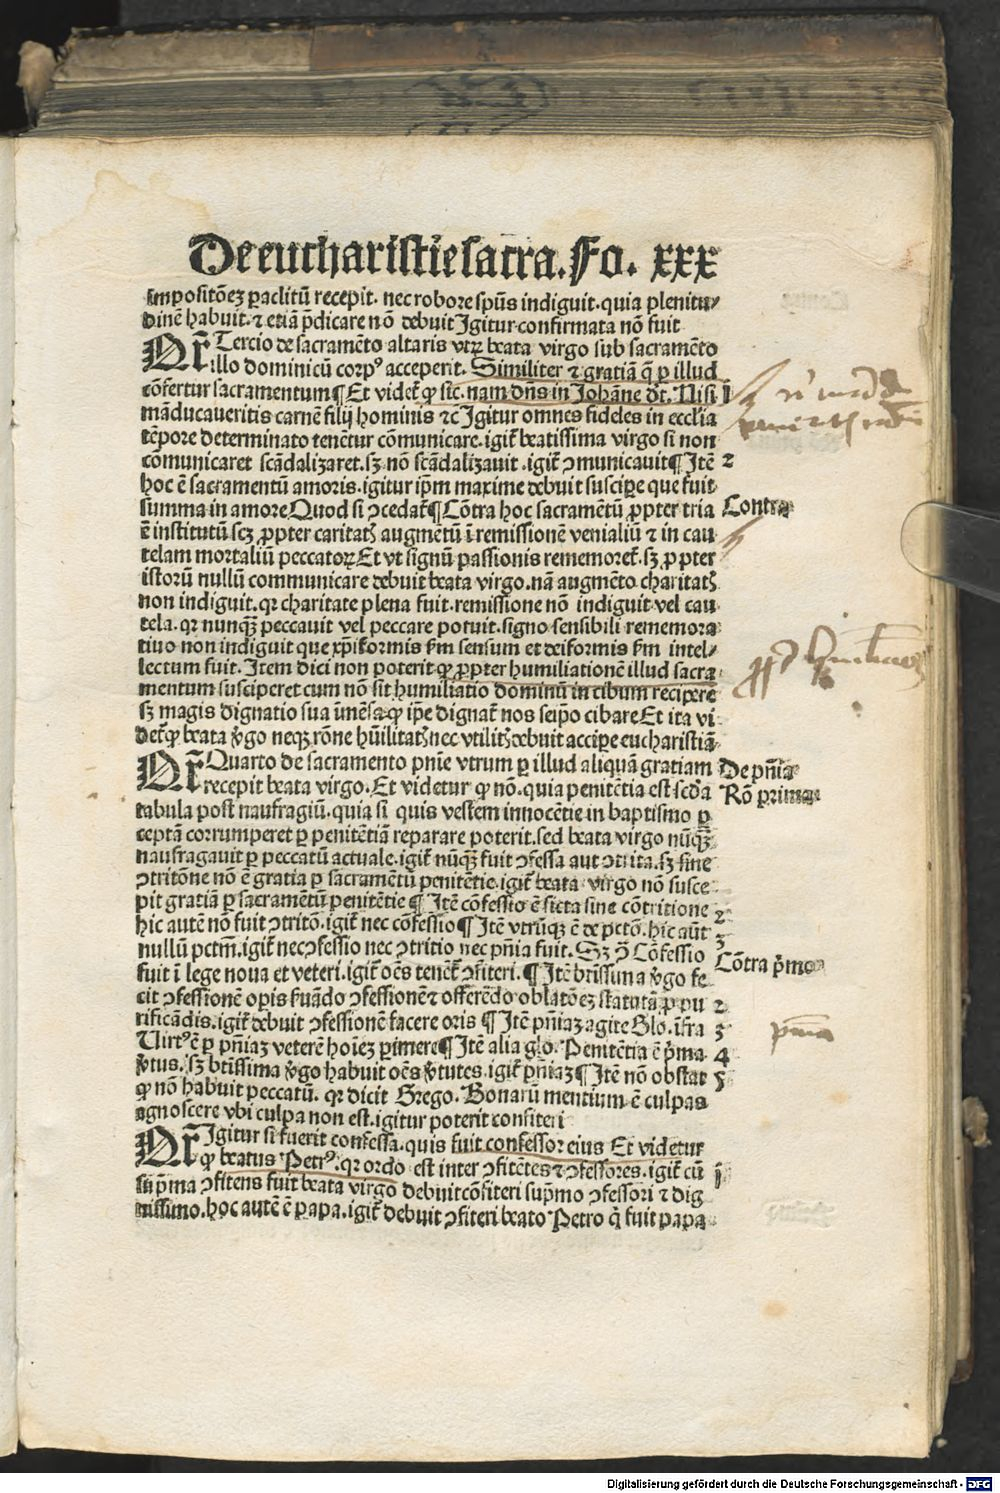 De eucharistie sacra. Fo. xxx
impositōeꝫ paclitū recepit. nec robore spūs indiguit. quia plenitu⸗
dinē habuit. ⁊ etiā p̄dicare nō debuit Igitur confirmata nō fuit
Qr̄ Tercio de sacramēto altaris vtꝝ beata virgo sub sacramēto
illo dominicū corpꝰ acceperit. Similiter ⁊ gratiā q̄ ꝑ illud
cōfertur sacramentum ¶ Et videt̄ ꝙ sic. nam dn̄s in Johāne dt̄. Nisi 1
māducaueritis carnē filij hominis ⁊c̄ Igitur omnes fideles in eccl̄ia
tēpore determinato tenētur cōmunicare. igit̄ beatissima virgo si non
cōmunicaret scādalizaret. sꝫ nō scādalizauit. igit̄ ꝯmunicauit ¶ Itē 2
hoc ē sacramentū amoris. igitur ip̄m maxime debuit suscipe que fuit
summa in amore Quod si ꝯcedat̄ ¶ Cōtra hoc sacramētū ꝓpter tria Contra
ē institutū scꝫ ꝓpter caritatꝭ augmētū ī remissionē venialiū ⁊ in cau
telam mortaliū peccatoꝝ Et vt signū passionis rememoret̄. sꝫ ꝓpter
istorū nullū communicare debuit beata virgo. nā augmēto charitatꝭ
non indiguit. qr charitate plena fuit. remissione nō indiguit vel cau
tela. qr nunqꝫ peccauit vel peccare potuit. signo sensibili rememora
tiuo non indiguit que xp̄iformis ẜm sensum et deiformis ẜm intel⸗
lectum fuit. Item dici non poterit ꝙ ꝓpter humiliationē illud sacra
mentum susciperet cum nō sit humiliatio dominū in cibum recipere
sꝫ magis dignatio sua īmēsa ꝙ ip̄e dignat̄ nos seip̄o cibare Et ita vi
det̄ ꝙ beata v̄go neqꝫ rōne hūilitatꝭ nec vtilitꝭ debuit accipe eucharistiā
Qr̄ Quarto de sacramento pn̄ie vtrum ꝑ illud aliquā gratiam De pn̄ia
recepit beata virgo. Et videtur ꝙ nō. quia penitētia est sc̄da Rō prima
tabula post naufragiū. quia si quis vestem innocētie in baptismo ꝑ
ceptā corrumperet ꝑ penitētiā reparare poterit. sed beata virgo nūqꝫ
naufragauit ꝑ peccatū actuale. igit̄ nūqꝫ fuit ꝯfessa aut ꝯtrita. sꝫ sine
ꝯtritōne nō ē gratia ꝑ sacramētū penitētie. igit̄ beata virgo nō susce
pit gratiā ꝑ sacramētū penitētie ¶ Itē cōfessio ē sicta sine cōtritione 2
hic autē nō fuit ꝯtritō. igit̄ nec cōfessio ¶ Itē vtrūqꝫ ē de pctō. hic aūt 3
nullū pctm̄. igit̄ nec ꝯfessio nec ꝯtritio nec pn̄ia fuit. Sꝫ ꝯ̄ Cōfessio
fuit ī lege noua et veteri. igit̄ oēs tenēt̄ ꝯfiteri. ¶ Itē bt̄issima v̄go fe Cōtra p̄mo
cit ꝯfessionē opis ẜuādo ꝯfessionē ⁊ offerēdo oblatōeꝫ statutā ꝓ pu 2
rificādis. igit̄ debuit ꝯfessionē facere oris ¶ Itē pn̄iaꝫ agite Glo. īfra 3
Uirtꝰ ē ꝑ pn̄iaꝫ veterē hoīeꝫ ꝑimere ¶ Itē alia glo. Penitētia ē p̄ma 4
v̄tus. sꝫ bt̄issima v̄go habuit oēs v̄tutes. igit̄ pn̄iaꝫ ¶ Itē nō obstat 5
ꝙ nō habuit peccatū. qr dicit Grego. Bonarū mentium ē culpas
agnoscere vbi culpa non est. igitur poterit confiteri
Qr̄ Igitur si fuerit confessa. quis fuit confessor eius Et videtur
ꝙ beatus Petrꝰ. qr ordo est inter ꝯfitētes ⁊ ꝯfessores. igit̄ cū 1
sup̄ma ꝯfitens fuit beata virgo debuit cōfiteri sup̄mo ꝯfessori ⁊ dig
nissimo. hoc autē ē papa. igit̄ debuit ꝯfiteri beato Petro q̄ fuit papa
Digitalisierung gefördert durch die Deutsche Forschungsgemeinschaft - DFG